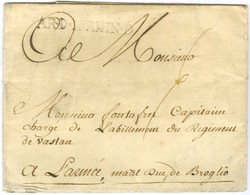 ARM. DU RHIN
A Monsieur
Monsieur fontafre Capitaine
Charge de Labillement du Regiment
de Vastan
A Larmée, mart Duc de Broglio